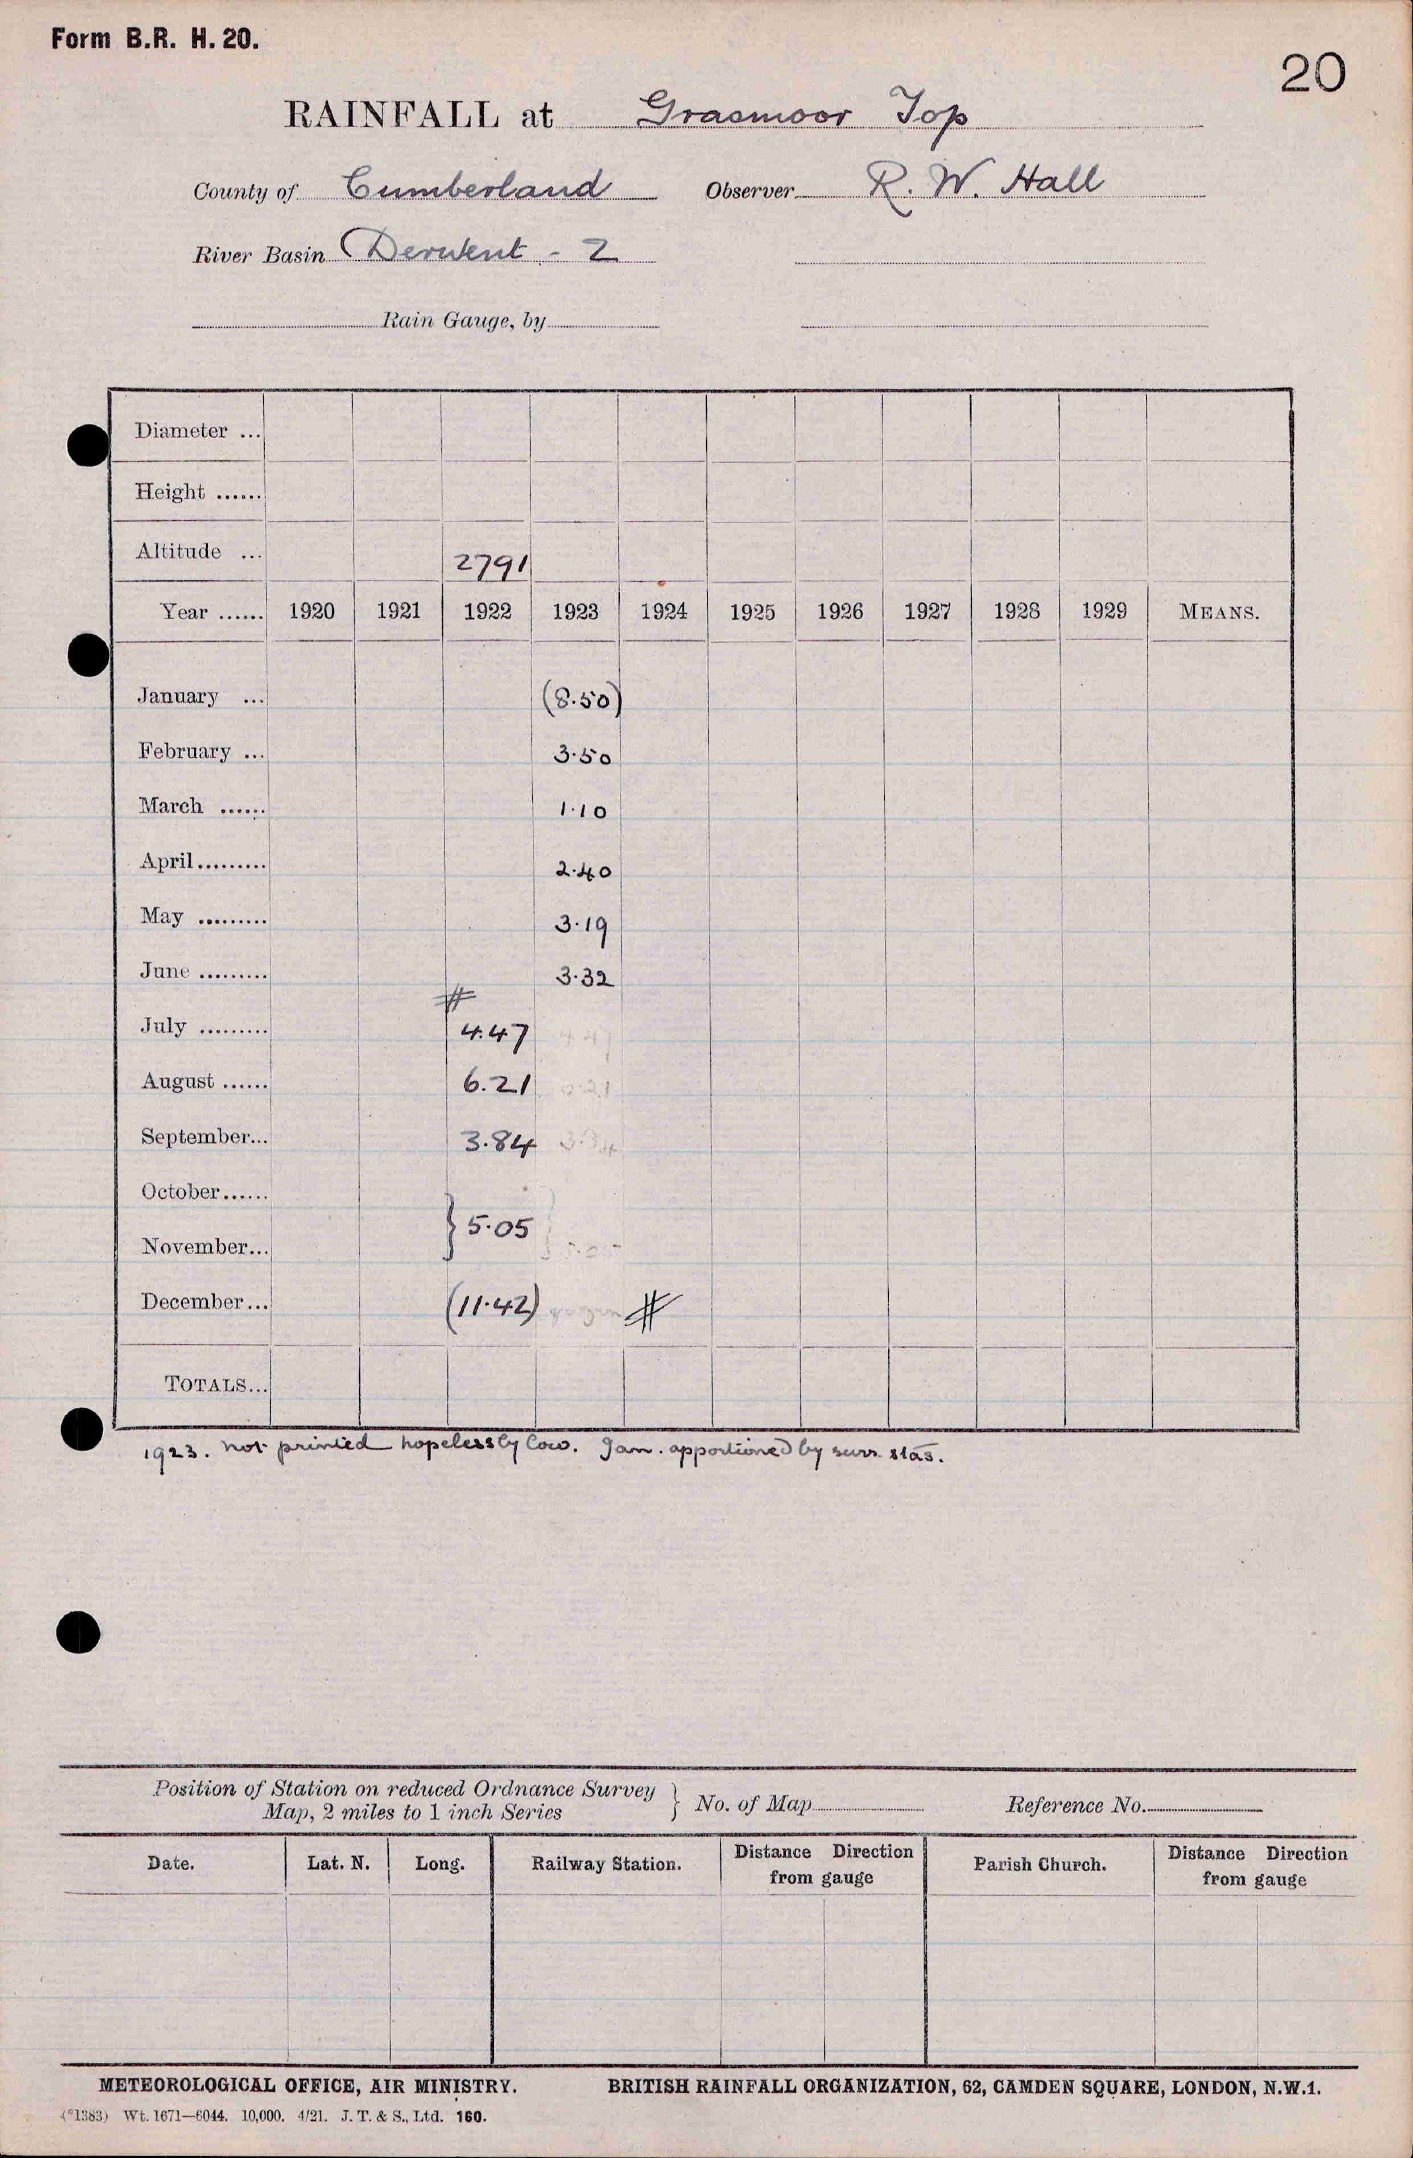 Form B.R. H. 20.
20
RAINFALL at Grasmoor Top
County of Cumberland Observer R. W. Hall
River Basin (Derwent - 2
Rain Gauge, by
Diameter ...
Height ......
Altitude ... 2791
Year ...... 1920 1921 1922 1923 1924 1925 1926 1927 1928 1929 MEANS.
January ... (8.50)
February ... 3.50
March ...... 1.10
April......... 2.40
May ......... 3.19
June ......... 3.32
#
July ......... 4.47
August ...... 6.21
September... 3.84
October......
} 5.05
November...
December... (11.42) #
TOTALS...
1923. not printed hopelessly low. Jan. apportioned by surr. stas.
Position of Station on reduced Ordnance Survey
Map, 2 miles to 1 inch Series } No. of Map Reference No.
Date. Lat. N. Long. Railway Station. Distance Direction from gauge Parish Church. Distance Direction from gauge
METEOROLOGICAL OFFICE, AIR MINISTRY. BRITISH RAINFALL ORGANIZATION, 62, CAMDEN SQUARE, LONDON, N.W.1.
(*1383) Wt. 1671—6044. 10,000. 4/21. J. T. & S., Ltd. 160.